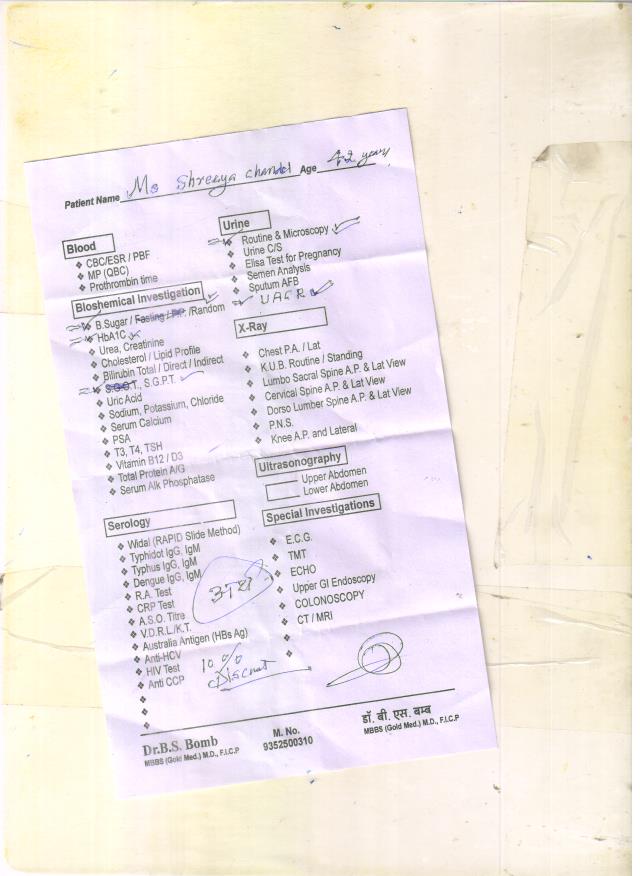 Patient Name Ms Shreeya Chandel Age 42 years
Blood
CBC/ESR / PBF
MP (QBC)
Prothrombin time
Bioshemical Investigation
B.Sugar / Fasting / P.P. /Random
HbA1C
Urea, Creatinine
Cholesterol / Lipid Profile
Bilirubin Total / Direct / Indirect
S.G.O.T., S.G.P.T.
Uric Acid
Sodium, Potassium, Chloride
Serum Calcium
PSA
T3, T4, TSH
Vitamin B12 / D3
Total Protein A/G
Serum Alk Phosphatase
Serology
Widal (RAPID Slide Method)
Typhidot IgG, IgM
Typhus IgG, IgM
Dengue IgG, IgM
R.A. Test
CRP Test
A.S.O. Titre
V.D.R.L/K.T.
Australia Antigen (HBs Ag)
Anti-HCV
HIV Test
Anti CCP
10 %
Discount
Urine
Routine & Microscopy
Urine C/S
Elisa Test for Pregnancy
Semen Analysis
Sputum AFB
UACR
X-Ray
Chest P.A. / Lat
K.U.B. Routine / Standing
Lumbo Sacral Spine A.P. & Lat View
Cervical Spine A.P. & Lat View
Dorso Lumber Spine A.P. & Lat View
P.N.S.
Knee A.P. and Lateral
Ultrasonography
Upper Abdomen
Lower Abdomen
Special Investigations
E.C.G.
TMT
ECHO
Upper GI Endoscopy
COLONOSCOPY
CT / MRI
Dr.B.S. Bomb
MBBS (Gold Med.) M.D., F.I.C.P
M. No.
9352500310
डॉ. बी. एस. बम्ब
MBBS (Gold Med.) M.D., F.I.C.P